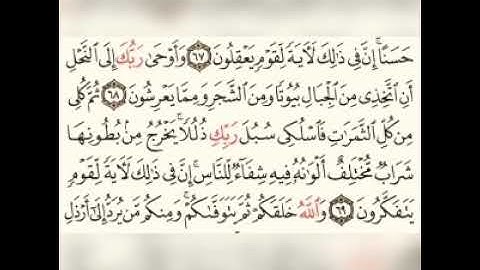 حَسَنًا ۗ إِنَّ فِي ذَٰلِكَ لَآيَةً لِّقَوْمٍ يَعْقِلُونَ ۝٦٧ وَأَوْحَىٰ رَبُّكَ إِلَى النَّحْلِ
أَنِ اتَّخِذِي مِنَ الْجِبَالِ بُيُوتًا وَمِنَ الشَّجَرِ وَمِمَّا يَعْرِشُونَ ۝٦٨ ثُمَّ كُلِي
مِن كُلِّ الثَّمَرَاتِ فَاسْلُكِي سُبُلَ رَبِّكِ ذُلُلًا ۚ يَخْرُجُ مِن بُطُونِهَا
شَرَابٌ مُّخْتَلِفٌ أَلْوَانُهُ فِيهِ شِفَاءٌ لِّلنَّاسِ ۗ إِنَّ فِي ذَٰلِكَ لَآيَةً لِّقَوْمٍ
يَتَفَكَّرُونَ ۝٦٩ وَاللَّهُ خَلَقَكُمْ ثُمَّ يَتَوَفَّاكُمْ ۚ وَمِنكُم مَّن يُرَدُّ إِلَىٰ أَرْذَلِ